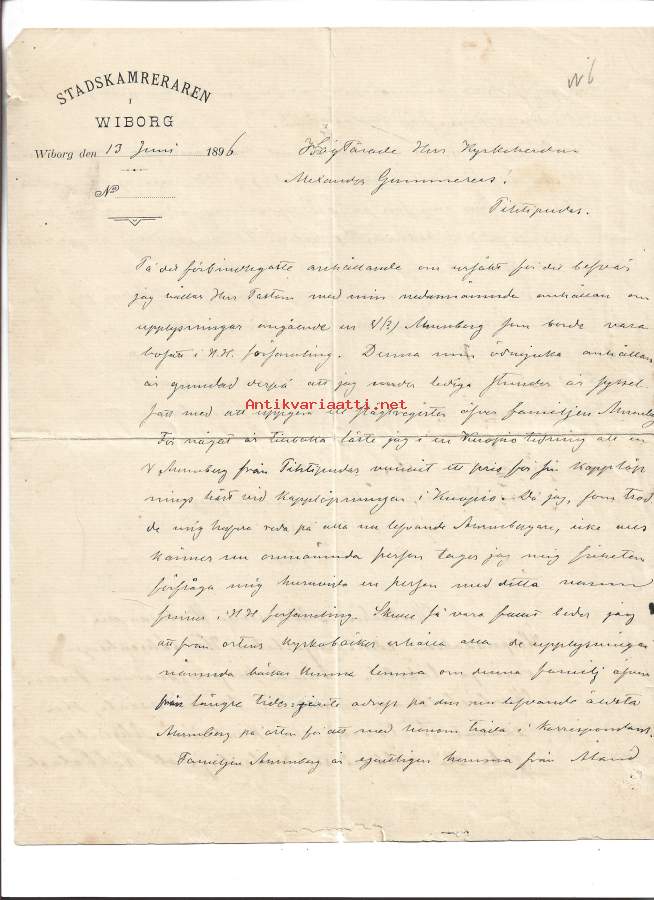 N 6
STADSKAMRERAREN
I
WIBORG
Wiborg den 13 Juni 1896
No
Högtärade Herr Kyrkoherden
Alexander Gummerus!
Pihtipudas.
På det förbindligaste anhållande om ursäkt för det besvär
jag vållar Herr Pastorn med min nedannämnda anhållan om
upplysningar angående en Munsberg som borde vara
bosatt i H.H. församling. Denna min ödmjuka anhållan
är grundad derpå att jag under lediga stunder är syssel-
satt med att uppgöra ett slägtregister öfver familjen
Antikvariaatti.net
För något år tillbaka läste jag i en Kuopio tidning att en
från Pihtipudas vunnit ett pris för sin kapplöp
nings häst vid kapplöpningen i Kuopio. Då jag, som trod
de mig hafva reda på alla nu lefvande icke
känner nu omnämnda person tager jag mig friheten
förfråga mig huruvida en person med detta namn
finnes i H.H. församling. Skulle så vara beder jag
att från ortens kyrkoböcker erhålla alla de upplysningar
nämnda böcker kunna lemna om denna familj äfven
från längre tider adress på den nu lefvande äldsta
på orten för att med honom träda i korrespondens.
Familjen är egentligen komma från Åland